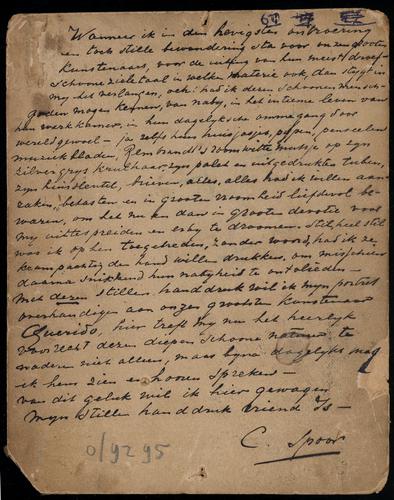 Wanneer ik in den hevigsten ontroering
en toch stille bewondering sta voor onze grooten
kunstenaars, voor de uiting van hun meest droef-
schoone zieletaal in welken materie ook, dan stijgt in
my het verlangen, och had ik deren schoonen mensch
mogen kennen, van naby, in het intieme leven van
hun werkkamer, in hun dagelyksche ommegang door
wereldgewoel — ja zelfs hun huisjasjes, pypen, penseelen
muziekbladen, Rembrandt's roomwitte mutsje op zyn
zilvergrys kroeshaar, zyn palet en uitgedrukte tuben,
zyn brieven, alles, alles had ik willen aan-
raken, betasten en in grooten vroomheid liefdevol be-
waren, om het nu en dan in grooten devotie voor
my uittespreiden en erby te droomen. Stil, heel stil
was ik op hen toegetreden, zonder woord, had ik ze
de hand willen drukken, om misschien
daarna snikkend hun nabyheid te ontvlieden —
Met dezen stillen handdruk wil ik myn portret
overhandigen aan onzen grootsten kunstenaar
Querido, hier treft my nu het heerlyk
voorrecht dezen diepen schoone natuur te
naderen niet alleen, maar byna dagelyks mag
ik hem zien en hooren spreken —
van dit geluk wil ik hier gewagen
Myn stillen handdruk vriend Is —
C. Spoor
0/92 95